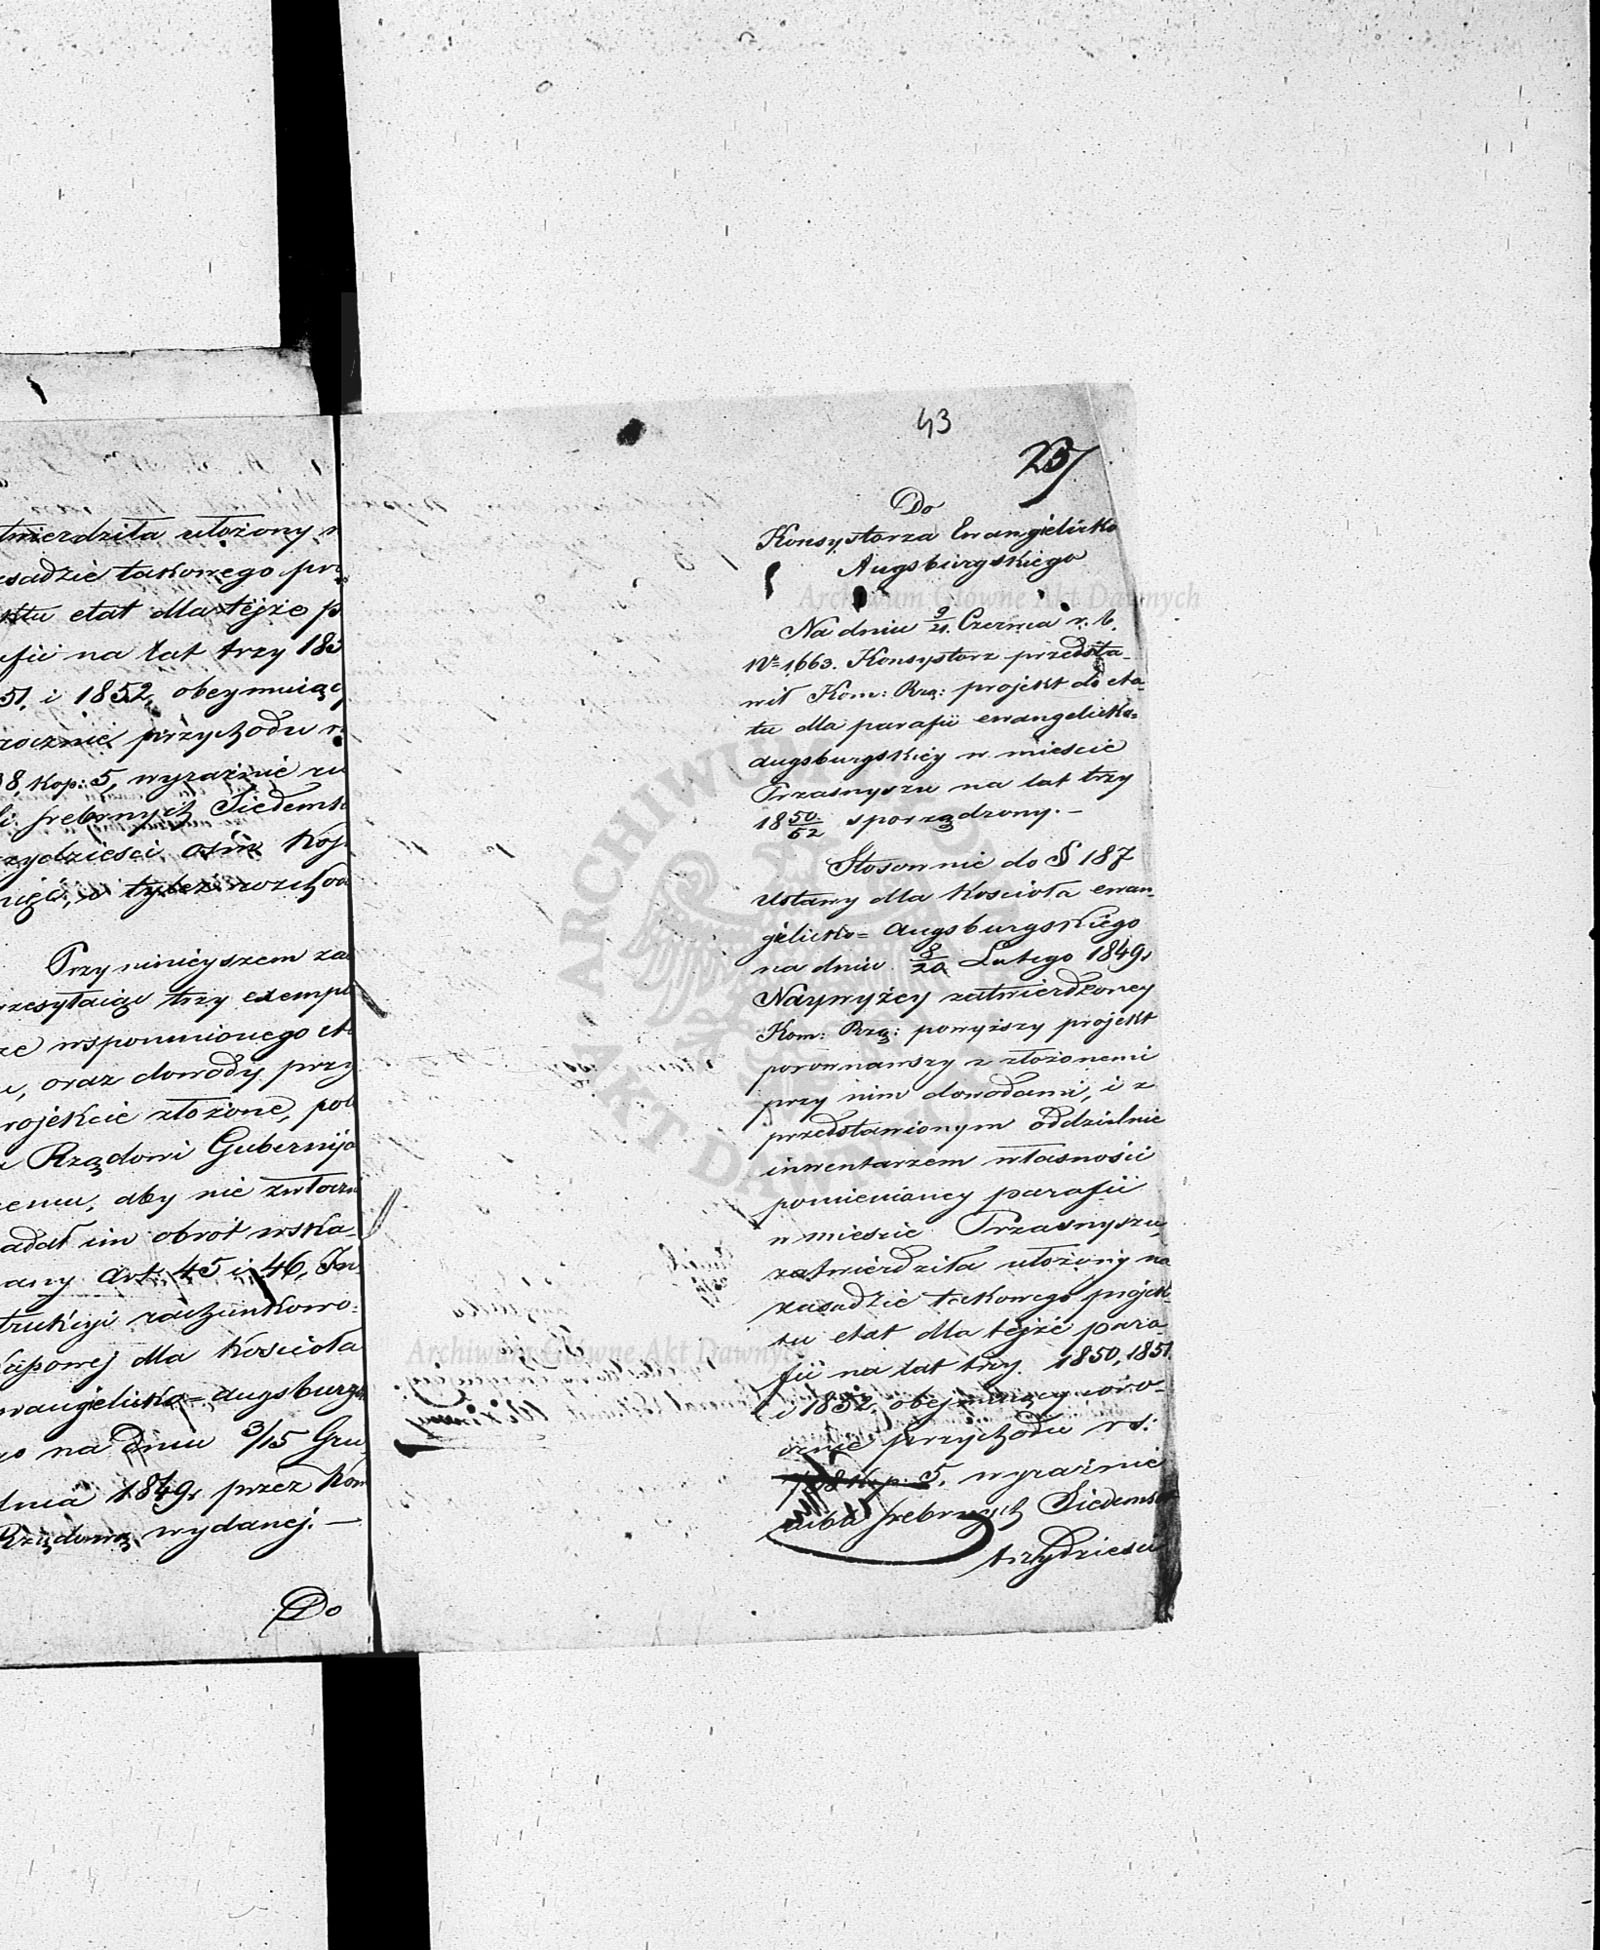 twierdziła ułożony n
sadzie takowego pro
ktu etat dla tejże p
fii na lat trzy 185
51, i 1852, obeymuiący
rocznie przychodu r
38, kop: 5, wyraźnie ru
li srebrnych Siedemse
rzydzieści ośm kop
pięć, a tyleż rozchod
Przy ninieyszem za
rzesyłaiąc trzy exempla
rze wspomnionego eta
u, oraz dowody przy
rojekcie złożone, pole
a Rządowi Gubernija
nemu, aby nie zwłoczn
adał im obrot wska-
any Art: 45 i 46, In-
trukcyi rachunkowo=
Kassowej dla Kościoła
ewangelicko=augsburgs
go na dniu 3/15 Gru
dnia 1849 r przez Kom
Rządową wydanej. —
Do
43
Do
Konsystorza Ewangielicko
Augsburgskiego
Na dniu 9/21. Czerwca r. b.
Nº 1,663. Konsystorz przedsta-
wił Kom: Rzą: projekt do eta-
tu dla parafii ewangelicko=
augsburgskiey w mieście
Przasnyszu na lat trzy
18 50/52 sporządzony. —
Stosownie do § 187
Ustawy dla Kościoła ewan-
gielicko= Augsburgskiego
na dniu 8/20 Lutego 1849 r
Naywyżey zatwierdzoney
Kom: Rzą: powyższy projekt
porownawszy z złożonemi
przy nim dowodami, i z
przedstawionym oddzielnie
inwentarzem własności
pomienioney parafii
w mieście Przasnyszu,
zatwierdziła ułożony na
zasadzie takowego projek-
tu etat dla tejże para-
fii na lat trzy 1850, 1851
i 1852, obejmuiący co ro-
cznie przychodu rs:
738 kop. 5, wyraźnie
rubli srebrnych Siedemset
trzydzieści
Archiwum Główne Akt Dawnych
ARCHIWUM GŁÓWNE AKT DAWNYCH
Archiwum Główne Akt Dawnych